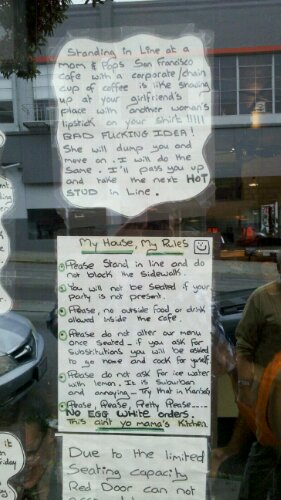 Standing in Line at a
mom & Pops San Francisco
cafe with a corporate/chain
cup of coffee is like showing
up at your girlfriend's
place with another woman's
lipstick on your shirt!!!!!
BAD FUCKING IDEA!
She will dump you and
move on. I will do the
Same. I'll pass you up
and take the next HOT
STUD in Line.
My House, My Rules
Please Stand in line and do
not block the sidewalk.
You will not be seated if your
party is not present.
Please, no outside food or drink
allowed inside the cafe.
Please do not alter our menu
once seated - if you ask for
substitutions you will be asked
to use more and cook for yourself
Please do not ask for ice water
with lemon. It is Suburban
and annoying - Try that in Kansas
Please, Please, Pretty Please....
No EGG WHITE orders.
This aint yo mama's Kitchen.
Due to the limited
Seating capacity
Red Door can not